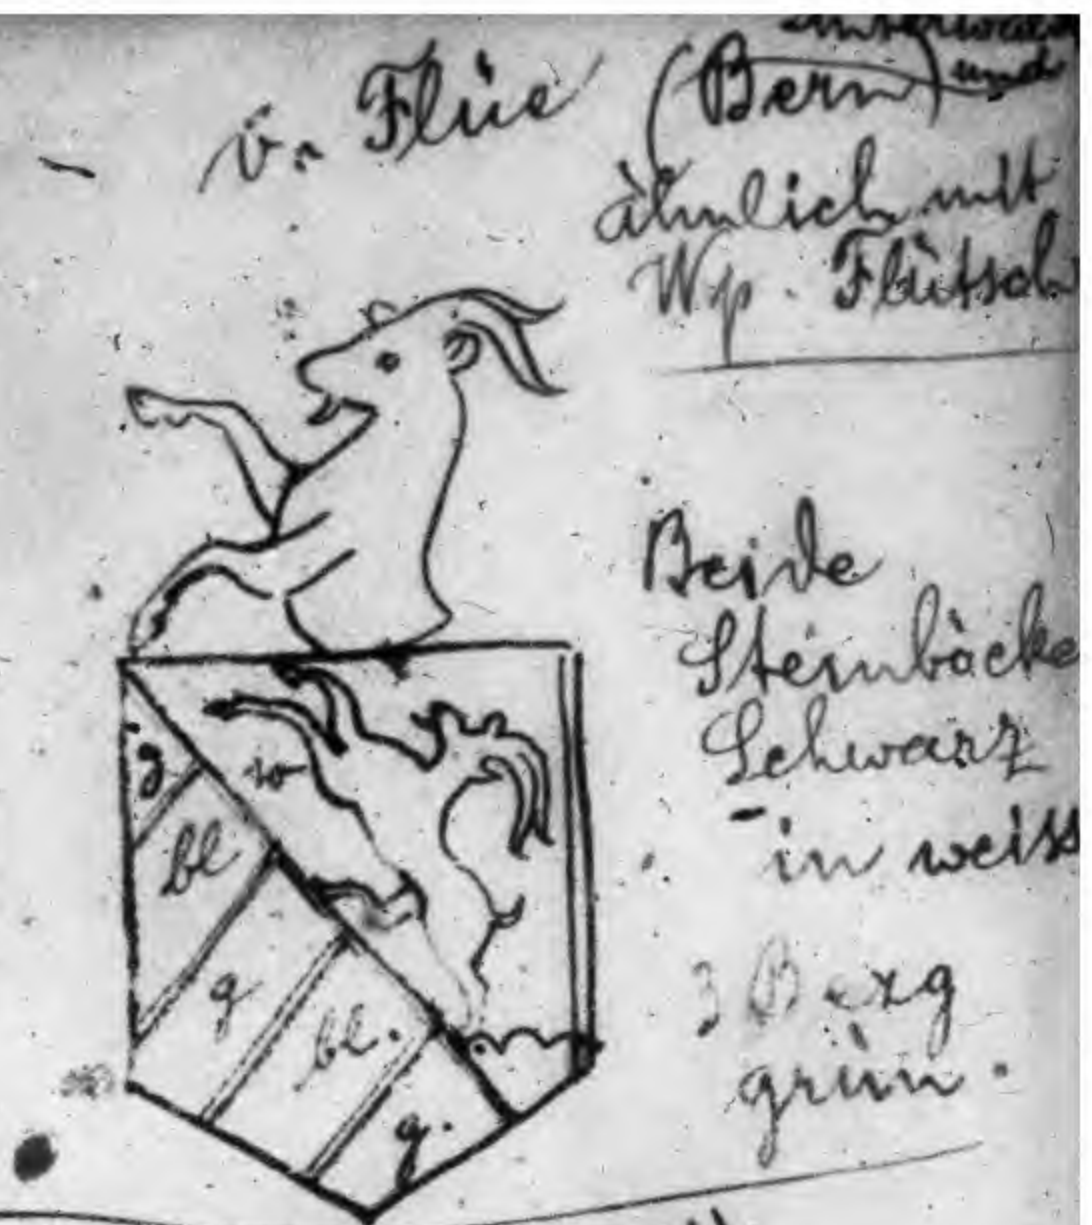 v. Flüe (Bern) und
ähnlich mit
Wp. Flütsch
Beide
Steinböcke
Schwarz
in weiss
3 Berg
grün.
w
g
bl
g
bl.
g.